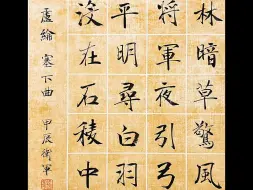 林暗草驚風
將軍夜引弓
平明尋白羽
沒在石稜中
盧綸 塞下曲 甲辰衛軍